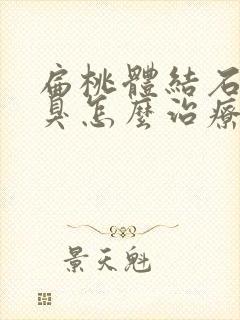 扁桃體結石
臭怎麼治療
景天魁